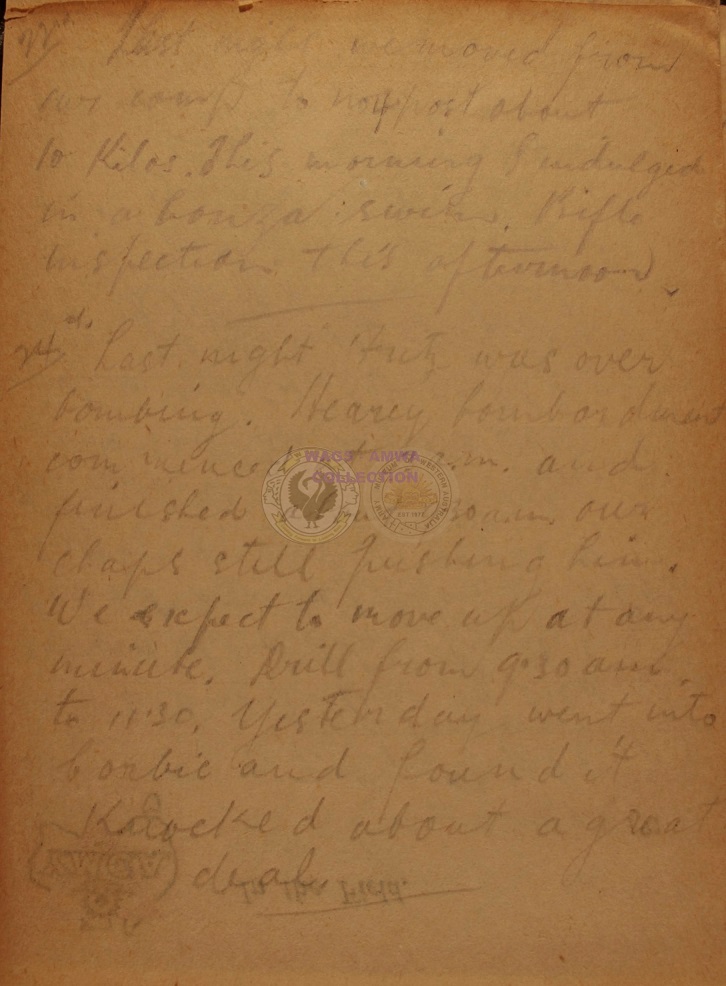 22nd. Last night we moved from
our camp to happost about
10 Kilos. This morning I indulged
in a bonza swim. Rifle
inspection this afternoon.
24th. Last night Fritz was over
bombing. Heavey bombordment
commenced a.m. and
finished 30 a.m. our
chaps still pushing him.
We expect to move up at any
minute. Drill from 9.30 am
to 11.30. Yesterday went into
Corbie and found it
Knocked about a great
deal.
WAGS AMWA
COLLECTION
Y.M.C.A.
In the Field.